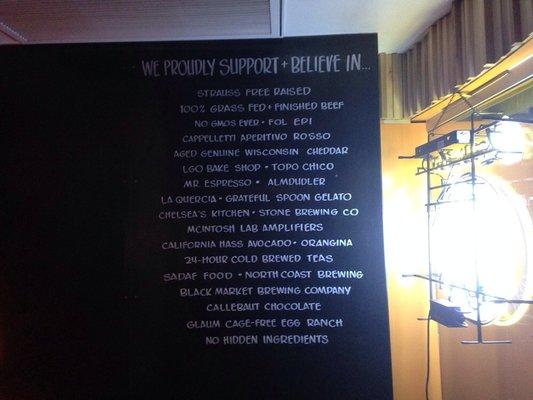 WE PROUDLY SUPPORT + BELIEVE IN...
STRAUSS FREE RAISED
100% GRASS FED + FINISHED BEEF
NO GMOS EVER • FOL EPI
CAPPELLETTI APERITIVO ROSSO
AGED GENUINE WISCONSIN CHEDDAR
LGO BAKE SHOP • TOPO CHICO
MR. ESPRESSO • ALMDUDLER
LA QUERCIA • GRATEFUL SPOON GELATO
CHELSEA'S KITCHEN • STONE BREWING CO
MCINTOSH LAB AMPLIFIERS
CALIFORNIA HASS AVOCADO • ORANGINA
24-HOUR COLD BREWED TEAS
SADAF FOOD • NORTH COAST BREWING
BLACK MARKET BREWING COMPANY
CALLEBAUT CHOCOLATE
GLAUM CAGE-FREE EGG RANCH
NO HIDDEN INGREDIENTS